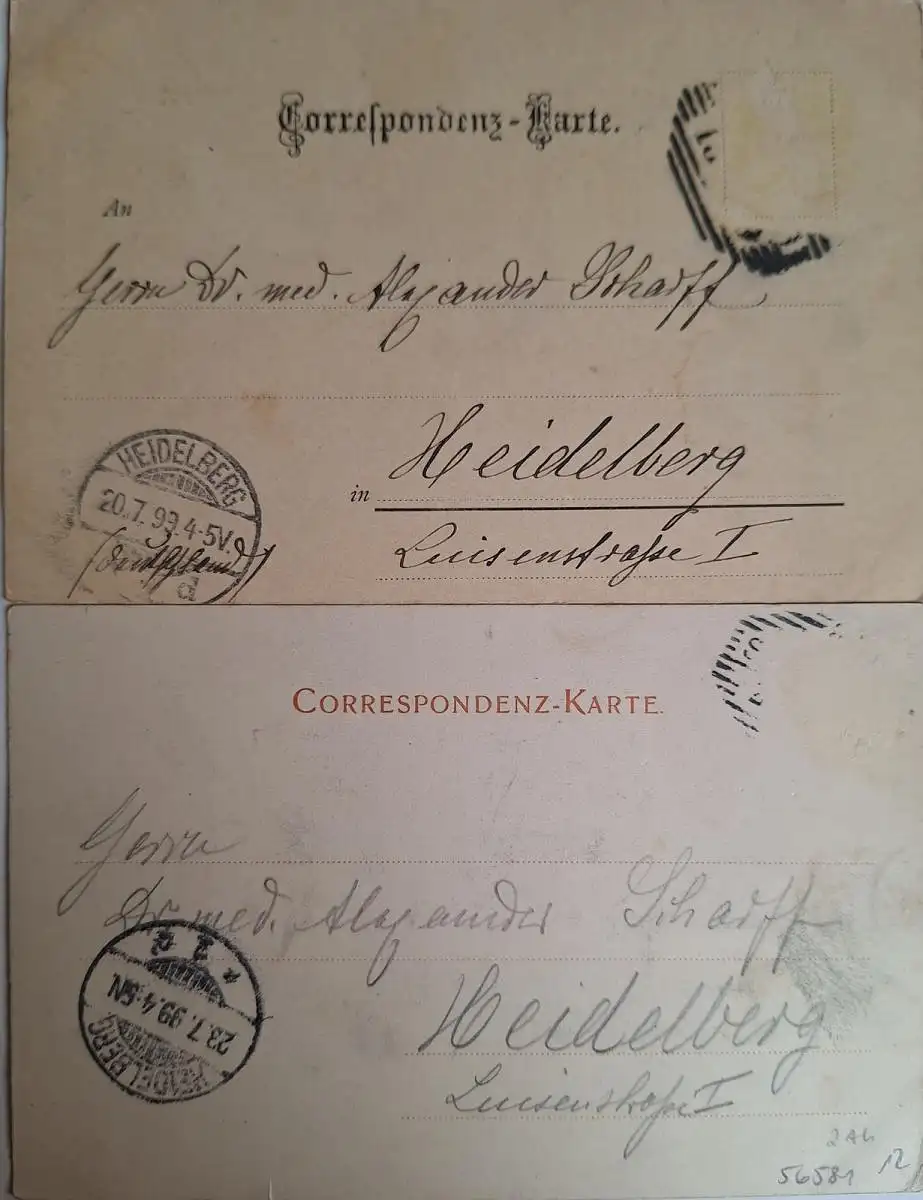 Correspondenz-Karte.
An
Herrn Dr. med. Alexander Scharff
in Heidelberg
Luisenstraße I
HEIDELBERG
20.7.99.4-5V.
(Deutschland)
d
CORRESPONDENZ-KARTE.
Herrn
Dr. med. Alexander Scharff
Heidelberg
Luisenstraße I
HEIDELBERG
23.7.99.4-5N
56581